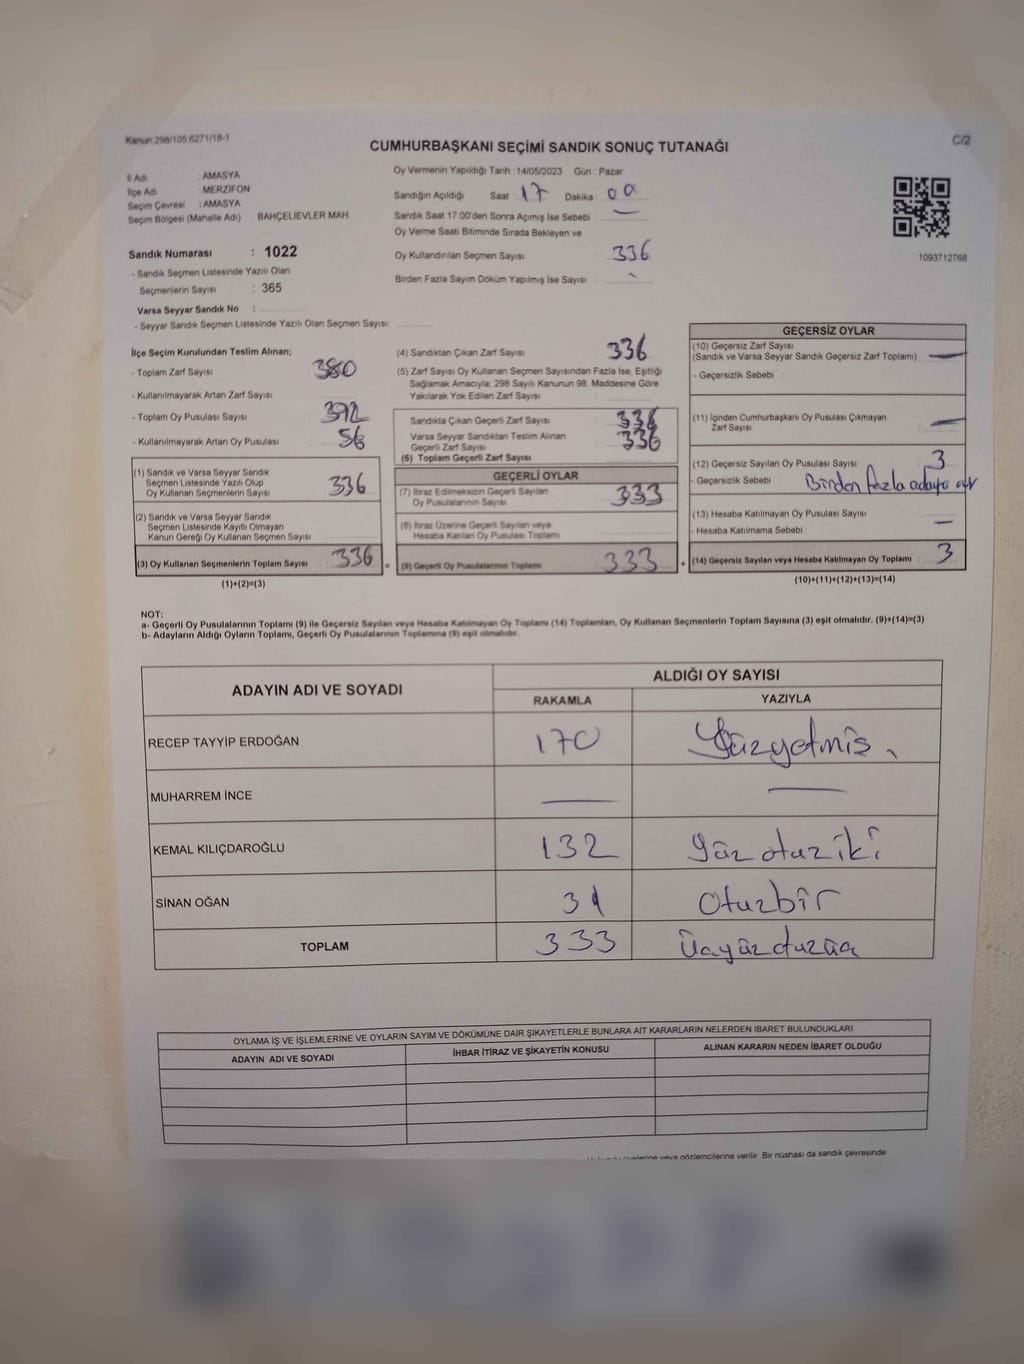 Kanun:298/105;6271/18-1
C/2
CUMHURBAŞKANI SEÇİMİ SANDIK SONUÇ TUTANAĞI
İl Adı : AMASYA
İlçe Adı : MERZİFON
Seçim Çevresi : AMASYA
Seçim Bölgesi (Mahalle Adı) : BAHÇELİEVLER MAH.
Sandık Numarası : 1022
- Sandık Seçmen Listesinde Yazılı Olan
Seçmenlerin Sayısı : 365
Varsa Seyyar Sandık No :
- Seyyar Sandık Seçmen Listesinde Yazılı Olan Seçmen Sayısı:
Oy Vermenin Yapıldığı Tarih :14/05/2023 Gün : Pazar
Sandığın Açıldığı Saat : 17 Dakika : 00
Sandık Saat 17:00'den Sonra Açımış İse Sebebi : —
Oy Verme Saati Bitiminde Sırada Bekleyen ve
Oy Kullandırılan Seçmen Sayısı : 336
Birden Fazla Sayım Döküm Yapılmış İse Sayısı :
1093712768
İlçe Seçim Kurulundan Teslim Alınan;
- Toplam Zarf Sayısı : 380
- Kullanılmayarak Artan Zarf Sayısı :
- Toplam Oy Pusulası Sayısı : 392
- Kullanılmayarak Artan Oy Pusulası : 56
(1) Sandık ve Varsa Seyyar Sandık
Seçmen Listesinde Yazılı Olup
Oy Kullanan Seçmenlerin Sayısı : 336
(2) Sandık ve Varsa Seyyar Sandık
Seçmen Listesinde Kayıtlı Olmayan
Kanun Gereği Oy Kullanan Seçmen Sayısı :
(3) Oy Kullanan Seçmenlerin Toplam Sayısı : 336
(1)+(2)=(3)
(4) Sandıktan Çıkan Zarf Sayısı : 336
(5) Zarf Sayısı Oy Kullanan Seçmen Sayısından Fazla İse, Eşitliği
Sağlamak Amacıyla; 298 Sayılı Kanunun 98. Maddesine Göre
Yakılarak Yok Edilen Zarf Sayısı :
Sandıkta Çıkan Geçerli Zarf Sayısı : 336
Varsa Seyyar Sandıktan Teslim Alınan
Geçerli Zarf Sayısı :
(6) Toplam Geçerli Zarf Sayısı : 336
GEÇERLİ OYLAR
(7) İtiraz Edilmeksizin Geçerli Sayılan
Oy Pusulalarının Sayısı : 333
(8) İtiraz Üzerine Geçerli Sayılan veya
Hesaba Katılan Oy Pusulası Toplamı :
(9) Geçerli Oy Pusulalarının Toplamı : 333
GEÇERSİZ OYLAR
(10) Geçersiz Zarf Sayısı
(Sandık ve Varsa Seyyar Sandık Geçersiz Zarf Toplamı) : —
- Geçersizlik Sebebi :
(11) İçinden Cumhurbaşkanı Oy Pusulası Çıkmayan
Zarf Sayısı : —
(12) Geçersiz Sayılan Oy Pusulası Sayısı : 3
- Geçersizlik Sebebi : Birden fazla adaya oy
(13) Hesaba Katılmayan Oy Pusulası Sayısı : —
- Hesaba Katılmama Sebebi :
(14) Geçersiz Sayılan veya Hesaba Katılmayan Oy Toplamı : 3
(10)+(11)+(12)+(13)=(14)
NOT:
a- Geçerli Oy Pusulalarının Toplamı (9) ile Geçersiz Sayılan veya Hesaba Katılmayan Oy Toplamı (14) Toplamları, Oy Kullanan Seçmenlerin Toplam Sayısına (3) eşit olmalıdır. (9)+(14)=(3)
b- Adayların Aldığı Oyların Toplamı, Geçerli Oy Pusulalarının Toplamına (9) eşit olmalıdır.
ADAYIN ADI VE SOYADI ALDIĞI OY SAYISI
RAKAMLA YAZIYLA
RECEP TAYYİP ERDOĞAN 170 Yüzyetmiş
MUHARREM İNCE — —
KEMAL KILIÇDAROĞLU 132 yüz otuz iki
SİNAN OĞAN 31 Otuzbir
TOPLAM 333 Üçyüzotuzüç
OYLAMA İŞ VE İŞLEMLERİNE VE OYLARIN SAYIM VE DÖKÜMÜNE DAİR ŞİKAYETLERLE BUNLARA AİT KARARLARIN NELERDEN İBARET BULUNDUKLARI
ADAYIN ADI VE SOYADI İHBAR İTİRAZ VE ŞİKAYETİN KONUSU ALINAN KARARIN NEDEN İBARET OLDUĞU
veya gözlemcilerine verilir. Bir nüshası da sandık çevresinde